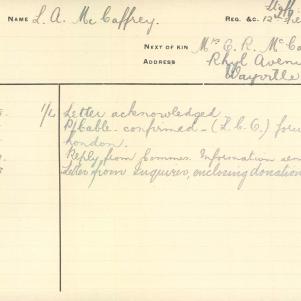 NAME L. A. McCaffrey.
REG. &C. 12
NEXT OF KIN Mrs E. R. McCa
ADDRESS Rhyl Aven
Wayville
1/2 Letter acknowledged.
P/Cable - confirmed - (L. C. C.) for
London.
Reply from Commrs. Information sen
Letter from Inquirer, enclosing donation